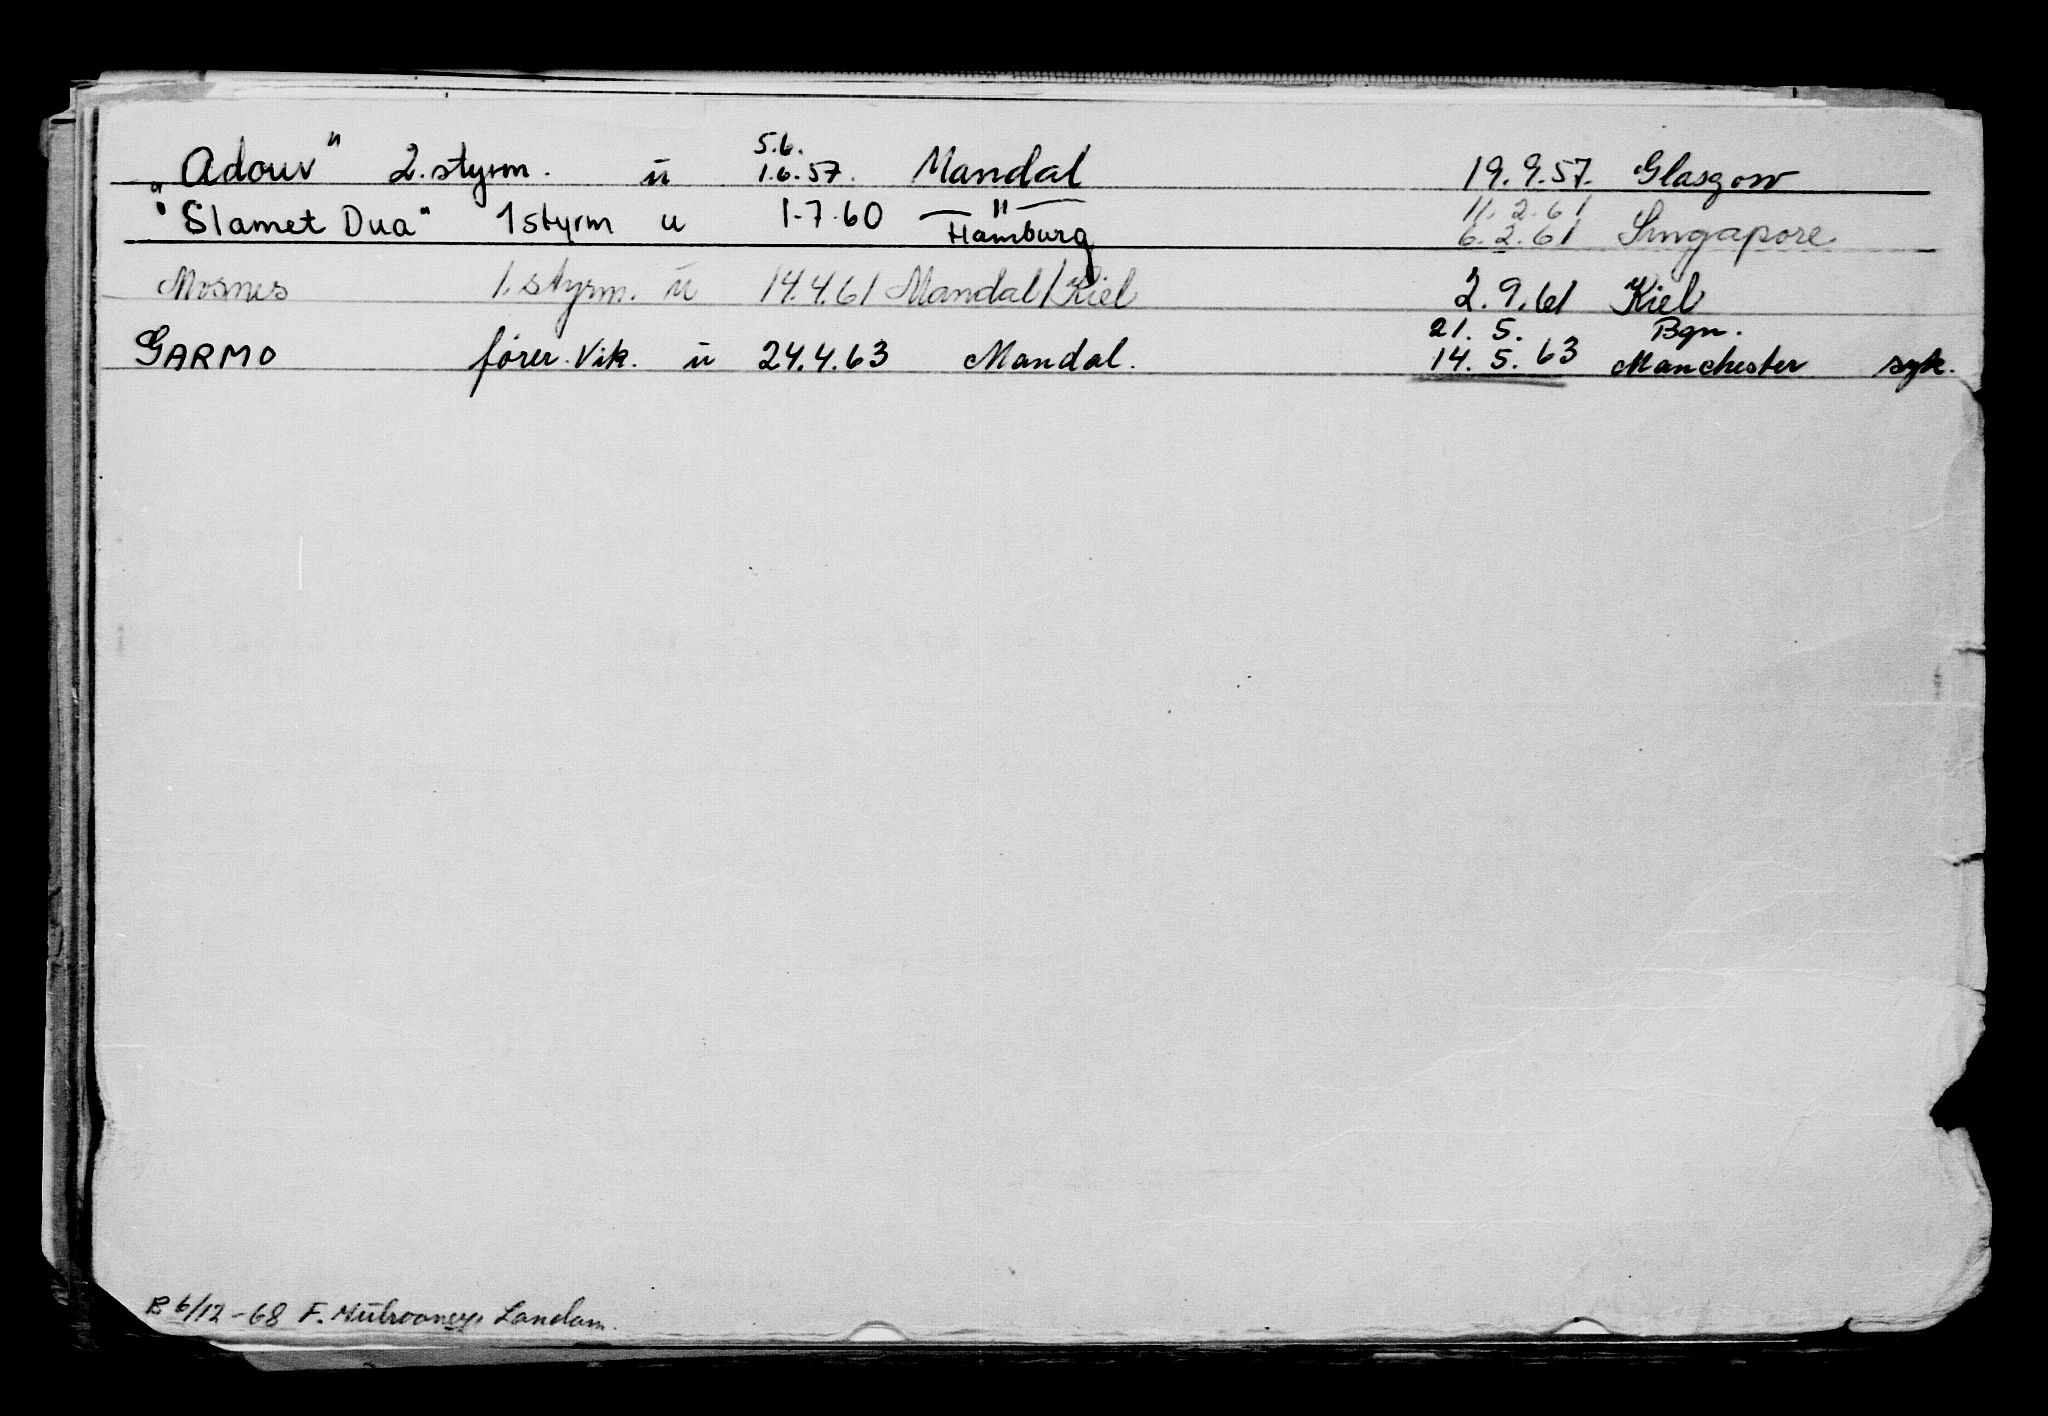 "Adour" 2.styrm. ü 5.6. 1.6.57. Mandal 19.9.57. Glasgow
"Slamet Dua" 1 styrm u 1-7-60 —"— Hamburg 11.2.61 6.2.61 Singapore.
Mosnes 1.styrm. ü 14.4.61 Mandal/Kiel 2.9.61 Kiel
GARMO fører.Vik. ü 24.4.63 Mandal. 21.5. Bgn. 14.5.63 Manchester syk.
B 6/12-68 F. London.